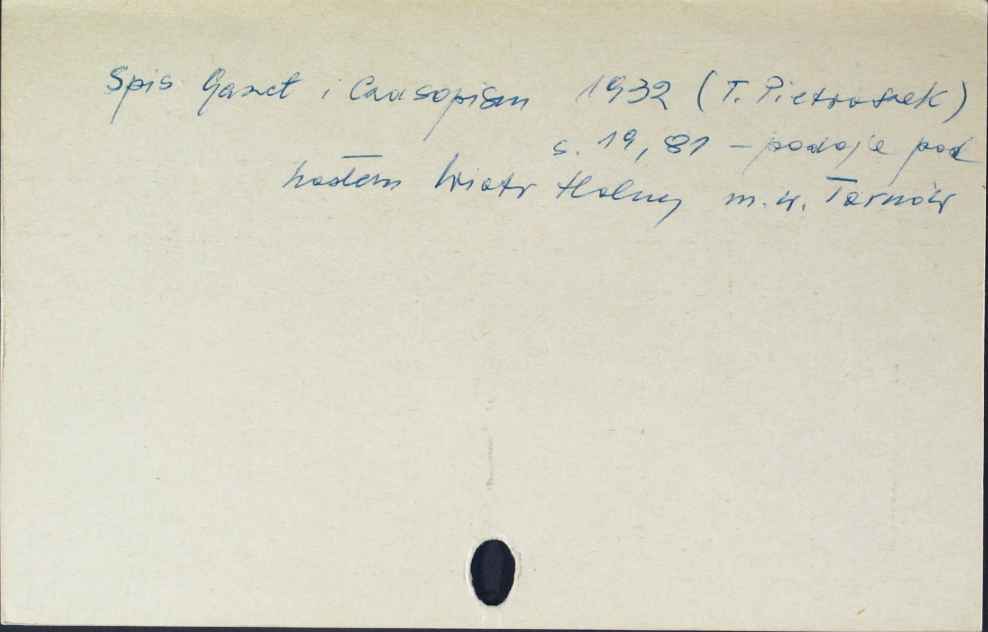 Spis Gazet i Czasopism 1932 (T. Pietraszek)
s. 19, 81 – podaje pod
hasłem Wiatr Halny m.w. Tarnów